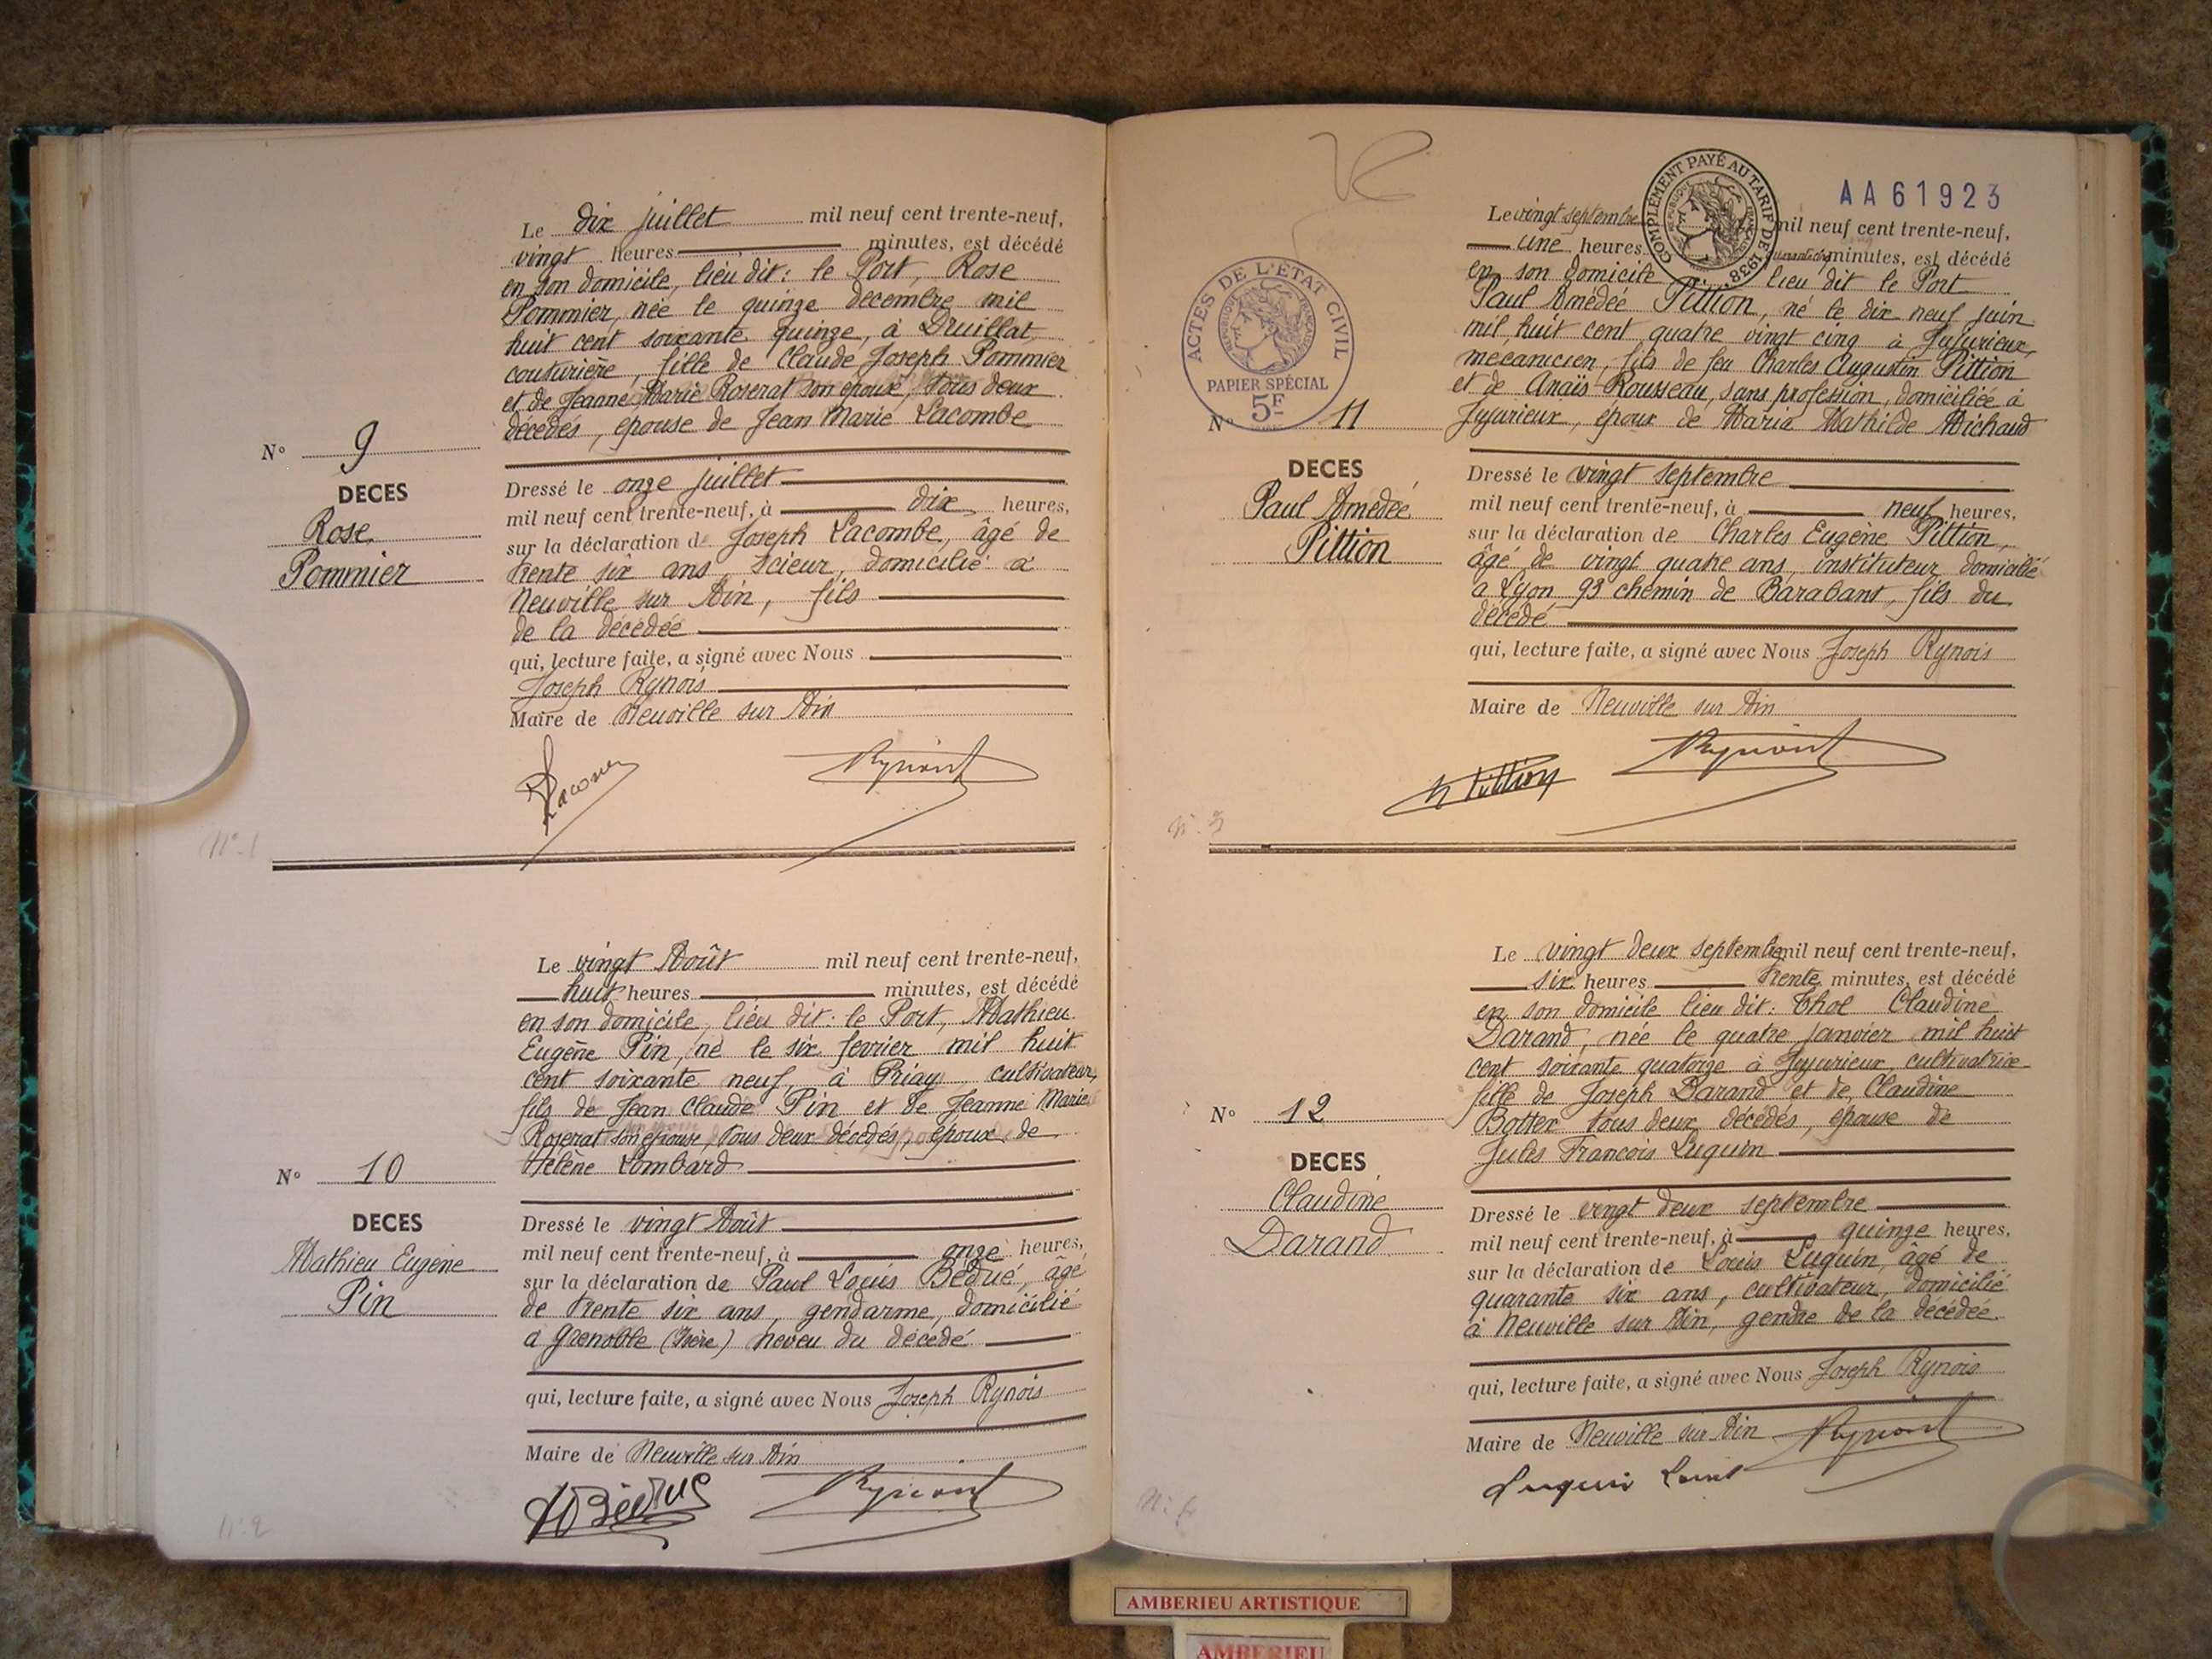 Le dix juillet mil neuf cent trente-neuf,
vingt heures minutes, est décédé
en son domicile, lieu dit: le Port, Rose
Pommier, née le quinze decembre mil
huit cent soixante quinze, à Druillat
couturière, fille de Claude Joseph Pommier
et de Jeanne Marie Roserat son epouse, tous deux
décédés, épouse de Jean Marie Lacombe
N° 9
DECES
Rose
Pommier
Dressé le onze juillet
mil neuf cent trente-neuf, à dix heures,
sur la déclaration de Joseph Lacombe, âgé de
trente six ans, scieur, domicilié à
Neuville sur Ain, fils
de la décédée
qui, lecture faite, a signé avec Nous
Joseph Rynois
Maire de Neuville sur Ain
N° 1
Le vingt Août mil neuf cent trente-neuf,
huit heures minutes, est décédé
en son domicile, lieu dit: le Port, Mathieu
Eugène Pin, né le six février mil huit
cent soixante neuf, à Priay, cultivateur,
fils de Jean Claude Pin et de Jeanne Marie
Roserat son epouse, tous deux décédés, époux de
Hélène Lombard
N° 10
DECES
Mathieu Eugène
Pin
Dressé le vingt Août
mil neuf cent trente-neuf, à onze heures,
sur la déclaration de Paul Louis Bédué, âgé
de trente six ans, gendarme, domicilié
a Grenoble (Isère) neveu du décédé
qui, lecture faite, a signé avec Nous Joseph Rynois
Maire de Neuville sur Ain
N° 2
COMPLÉMENT PAYÉ AU TARIF DE 1938
AA61923
Le vingt septembre mil neuf cent trente-neuf,
une heures minutes, est décédé
en son domicile lieu dit le Port
Paul Amédée Pittion, né le dix neuf juin
mil huit cent quatre vingt cinq à Jujurieux,
mecanicien, fils de feu Charles Augustin Pittion
et de Anaïs Rousseau, sans profession, domiciliée à
Jujurieux, époux de Maria Mathilde Michaud
ACTES DE L'ETAT CIVIL
PAPIER SPÉCIAL
5F
N° 11
DECES
Paul Amédée
Pittion
Dressé le vingt septembre
mil neuf cent trente-neuf, à neuf heures,
sur la déclaration de Charles Eugène Pittion,
âgé de vingt quatre ans, instituteur domicilié
a Lyon 93 chemin de Baraban, fils du
décédé
qui, lecture faite, a signé avec Nous Joseph Rynois
Maire de Neuville sur Ain
Pittion
N° 3
Le vingt deux septembre mil neuf cent trente-neuf,
six heures trente minutes, est décédé
en son domicile lieu dit: Thol Claudine
Darand, née le quatre janvier mil huit
cent soixante quatorze à Jujurieux, cultivatrice
fille de Joseph Darand et de Claudine
Bottex tous deux décédés, épouse de
Jules François Luquin
N° 12
DECES
Claudine
Darand
Dressé le vingt deux septembre
mil neuf cent trente-neuf, à quinze heures,
sur la déclaration de Louis Luquin, âgé de
quarante six ans, cultivateur, domicilié
à Neuville sur Ain, gendre de la décédée.
qui, lecture faite, a signé avec Nous Joseph Rynois
Maire de Neuville sur Ain
Luquin Louis
AMBERIEU ARTISTIQUE
AMBERIEU